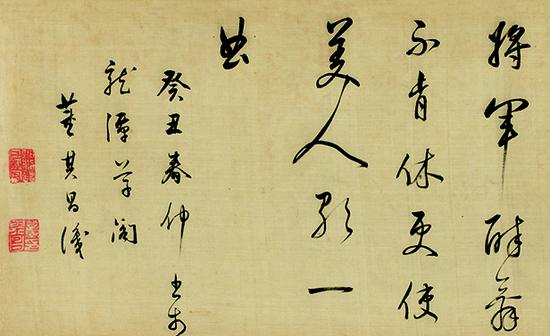 將軍醉舞
不肯休更使
美人吹一
曲
癸丑春仲書於
龍潭草閣
董其昌識